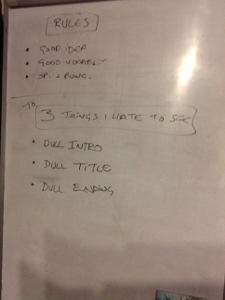 RULES
• GOOD IDEA
• GOOD VOCABLY
• SP. & PUNC.
3 THINGS I HATE TO SEE
• DULL INTRO
• DULL TITLE
• DULL ENDING